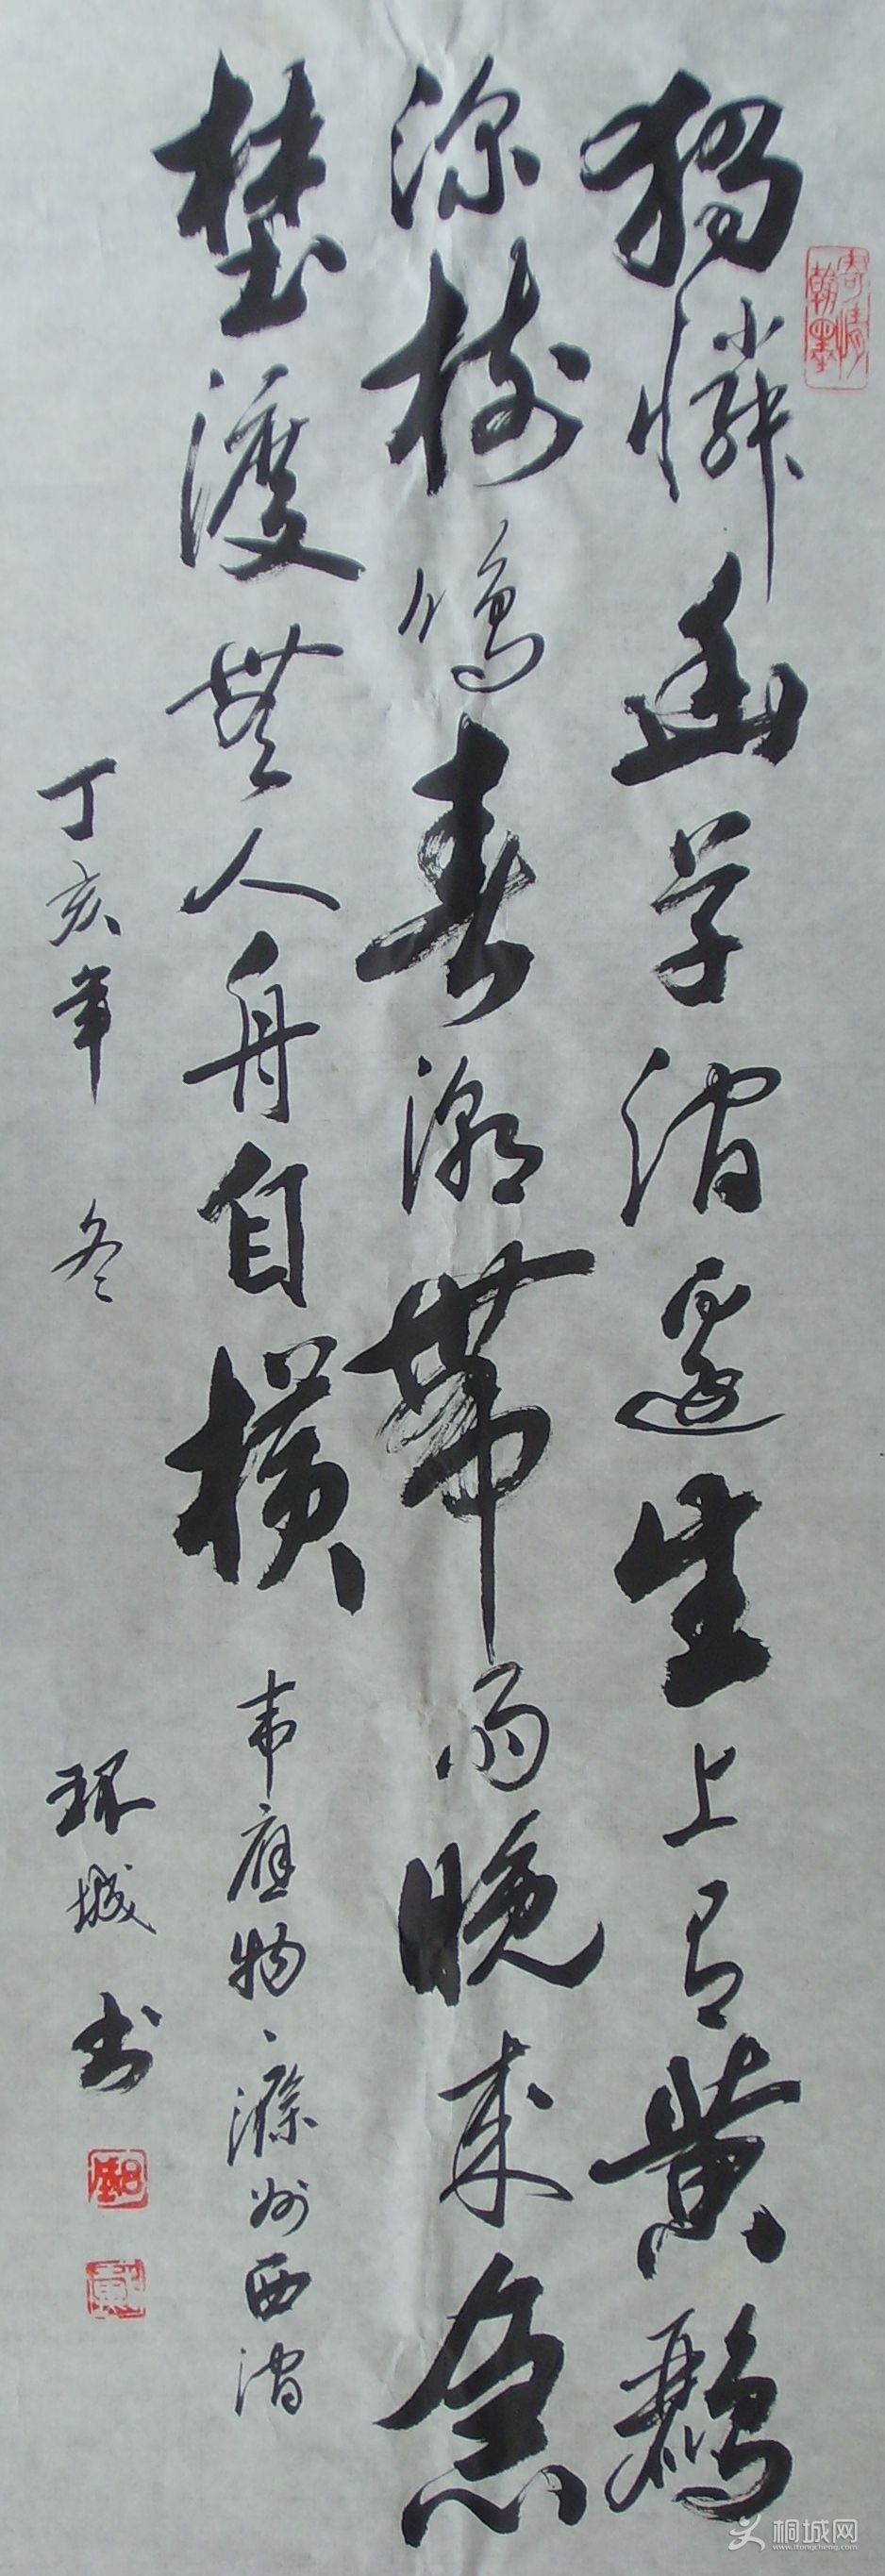 獨憐幽草澗邊生上有黄鸝
深樹鳴春潮帶雨晚來急
埜渡無人舟自横
韦應物、滁州西澗
丁亥年 冬
环城书
寄情翰墨
桐城网
www.itongcheng.com